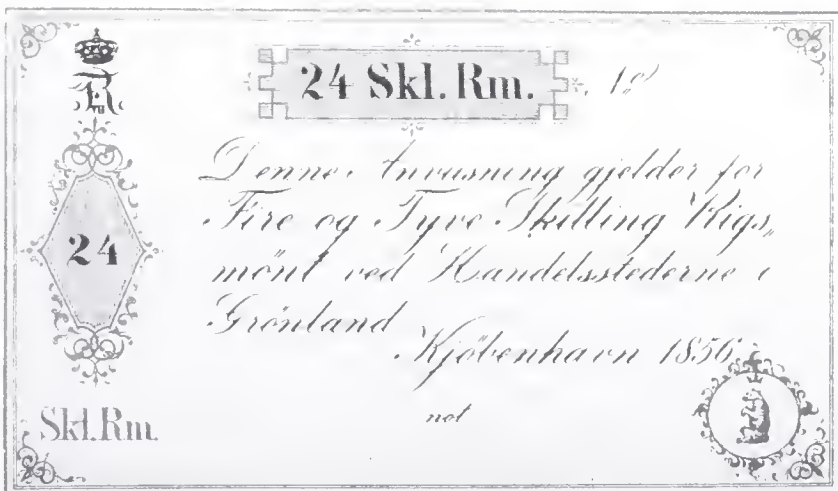 24 Skl. Rm. No
Denne Anvisning gjelder for
Fire og Tyve Skilling Rigs„
mönt ved Handelsstederne i
Grönland
Kjöbenhavn 1856.
24
Skl.Rm.
not